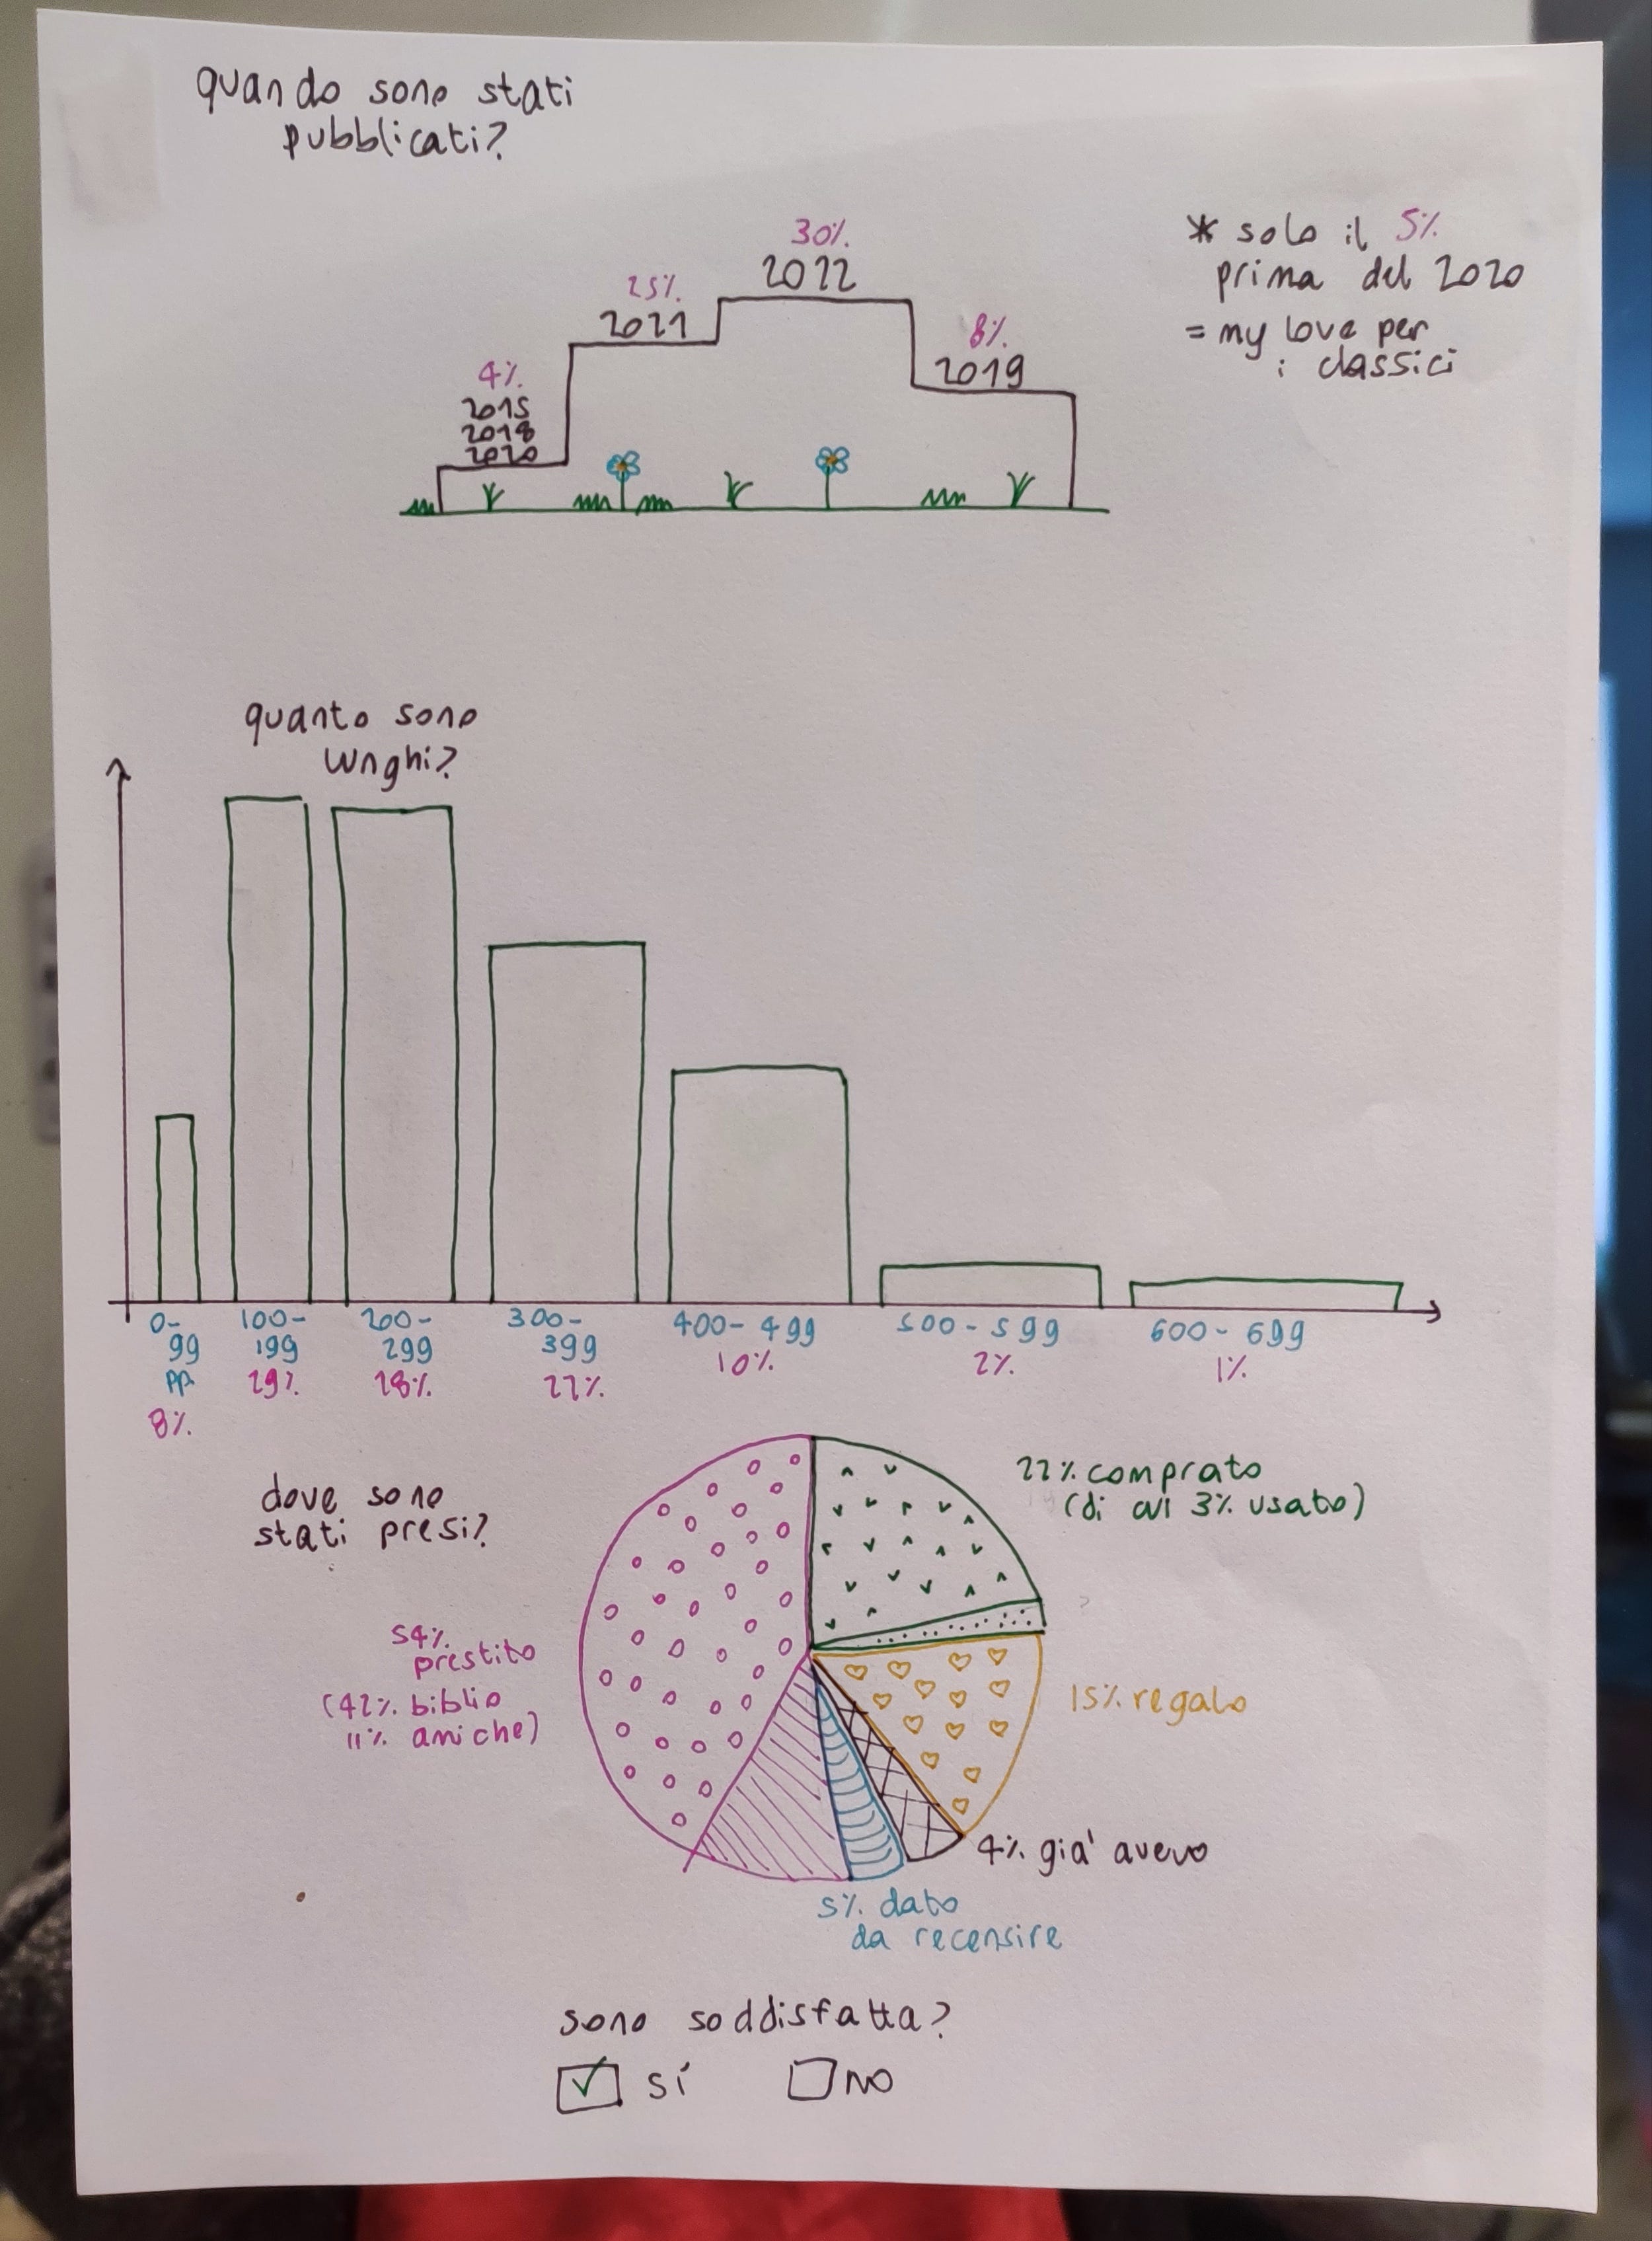 quando sono stati
pubblicati?
30%
2022
25%
2021
8%
2019
4%
2015
2018
2020
* solo il 5%
prima del 2020
= my love per
i classici
quanto sono
lunghi?
0-
99
pp.
8%
100-
199
29%
200-
299
28%
300-
399
22%
400-499
10%
500-599
2%
600-699
1%
dove sono
stati presi?
22% comprato
(di cui 3% usato)
54%
prestito
(42% biblio
11% amiche)
15% regalo
4% già avevo
5% dato
da recensire
sono soddisfatta?
sí
no